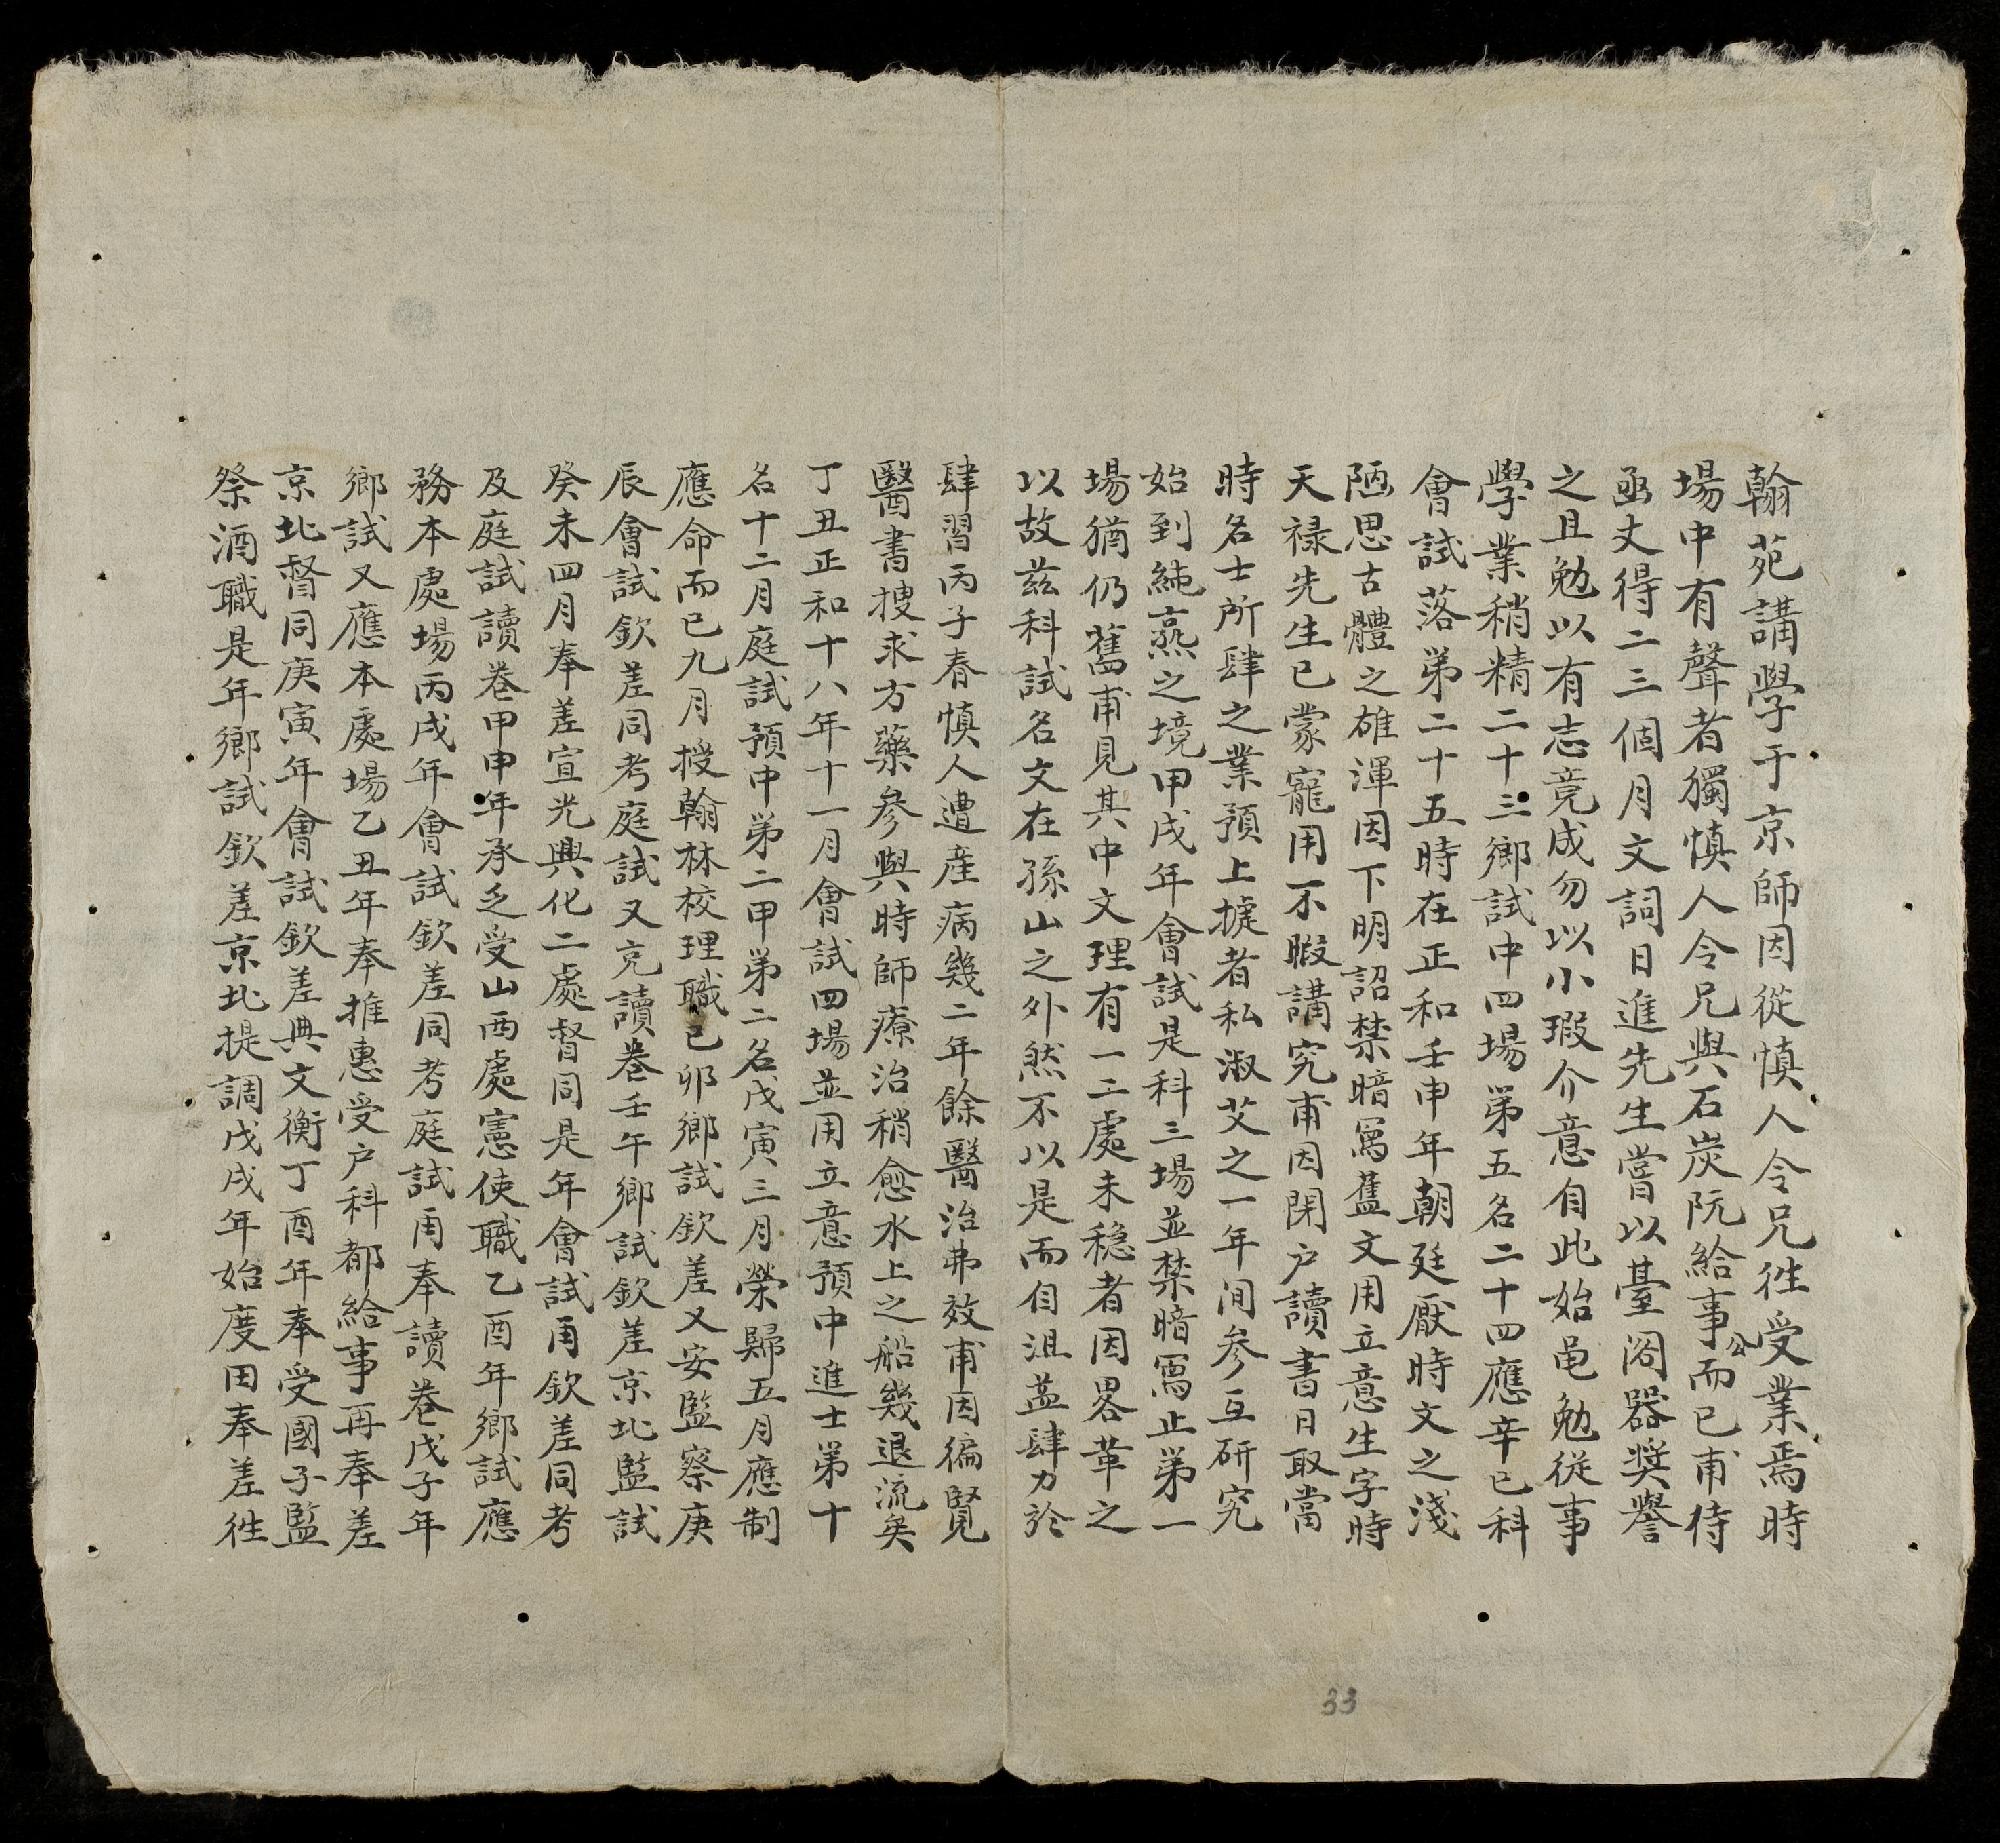 翰苑講學于京師因從慎人令兄徃受業焉時
場中有聲者獨慎人令兄與石炭阮給事公而已甫侍
函丈得二三個月文詞日進先生嘗以臺閣器奬譽
之且勉以有志竟成勿以小瑕介意自此始黽勉從事
學業稍精二十三鄉試中四場第五名二十四應辛巳科
會試落第二十五時在正和壬申年朝廷厭時文之淺
陋思古體之雄渾因下明詔禁暗寫舊文用立意生字時
天禄先生已蒙寵用不暇講究甫因閉户讀書日取當
時名士所肆之業預上㨿者私淑艾之一年间参互研究
始到純熟之境甲戌年會試是科三場並禁暗寫止第一
場猶仍舊甫見其中文理有一二處未穏者因畧革之
以故兹科試名文在孫山之外然不以是而自沮益肆力於
肆習丙子春慎人遭産病幾二年餘醫治弗效甫因徧覽
醫書搜求方藥參與時師療治稍愈水上之船幾退流矣
丁丑正和十八年十一月會試四場並用立意預中進士第十
名十二月庭試預中第二甲第二名戊寅三月榮歸五月應制
應命而已九月授翰林校理職己卯鄉試欽差又安監察庚
辰會試欽差同考庭試又充讀卷壬午鄉試欽差京北監試
癸未四月奉差宣光興化二處督同是年會試再欽差同考
及庭試讀卷甲申年承乏受山西處憲使職乙酉年鄉試應
務本處場丙戌年會試欽差同考庭試再奉讀卷戊子年
鄉試又應本處場乙丑年奉推惠受户科都給事再奉差
京北督同庚寅年會試欽差典文衡丁酉年奉受國子監
祭酒職是年鄉試欽差京北提調戊戌年始度田奉差徃
33